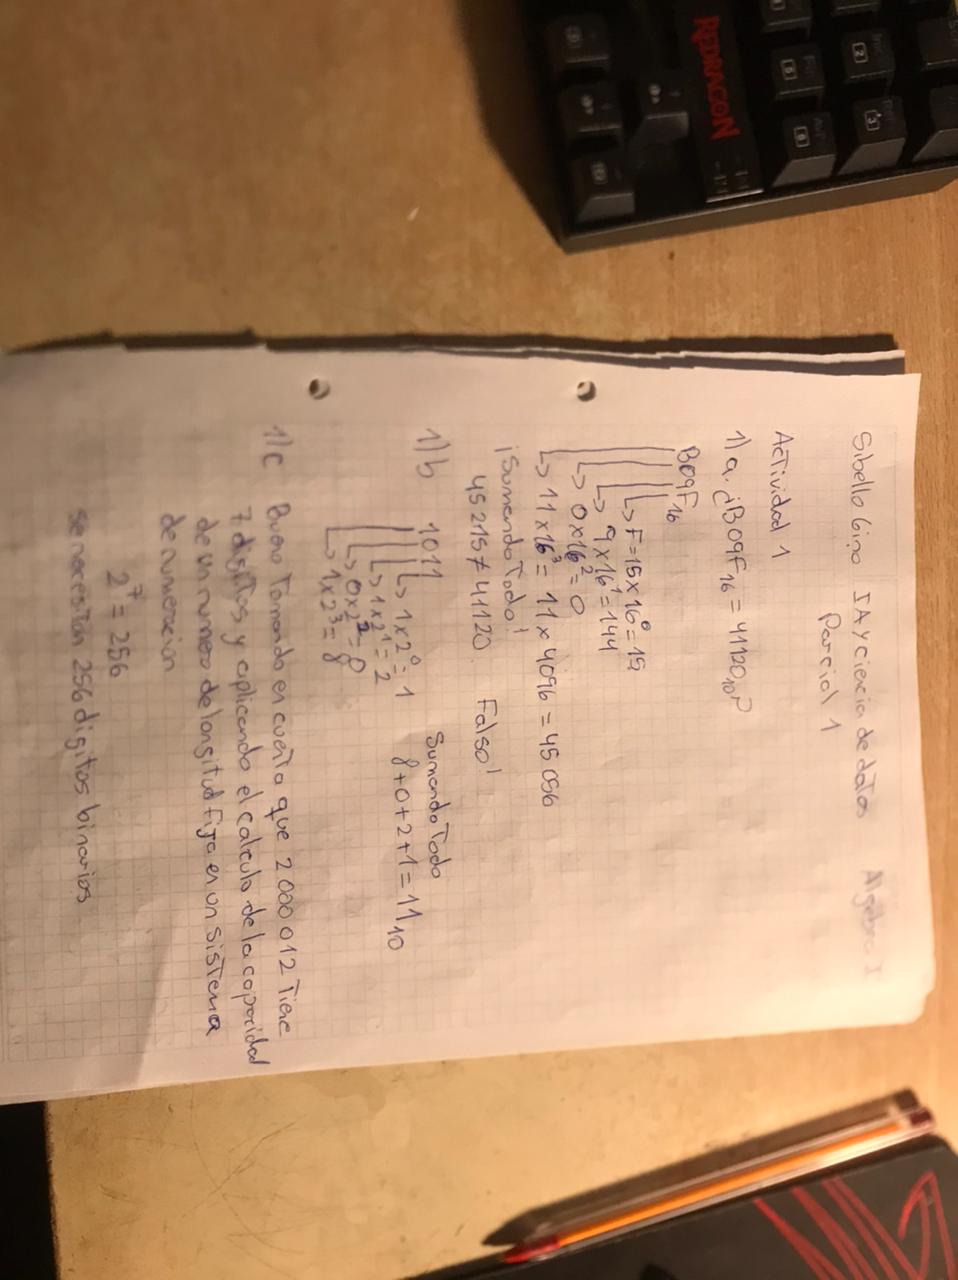 Sibello Gino IA y ciencia de datos Algebra I
Parcial 1
Actividad 1
1) a. ¿B09F16 = 4112010?
B09F16
↳ F=15x16⁰=15
↳ 9x16¹=144
↳ 0x16²=0
↳ 11x16³= 11x4096 = 45056
¡Sumando Todo!
45215≠41120 Falso!
1)b 1011
↳ 1x2⁰=1
↳ 1x2¹=2
↳ 0x2²=0
↳ 1x2³=8
Sumando Todo
8+0+2+1=1110
1)c Bueno Tomando en cuenta que 2000012 Tiene
7 digitos y aplicando el calculo de la capacidad
de un numero de longitud fija en un sistema
de numeracion
2⁷=256
se necesitan 256 digitos binarios
REDRAGON